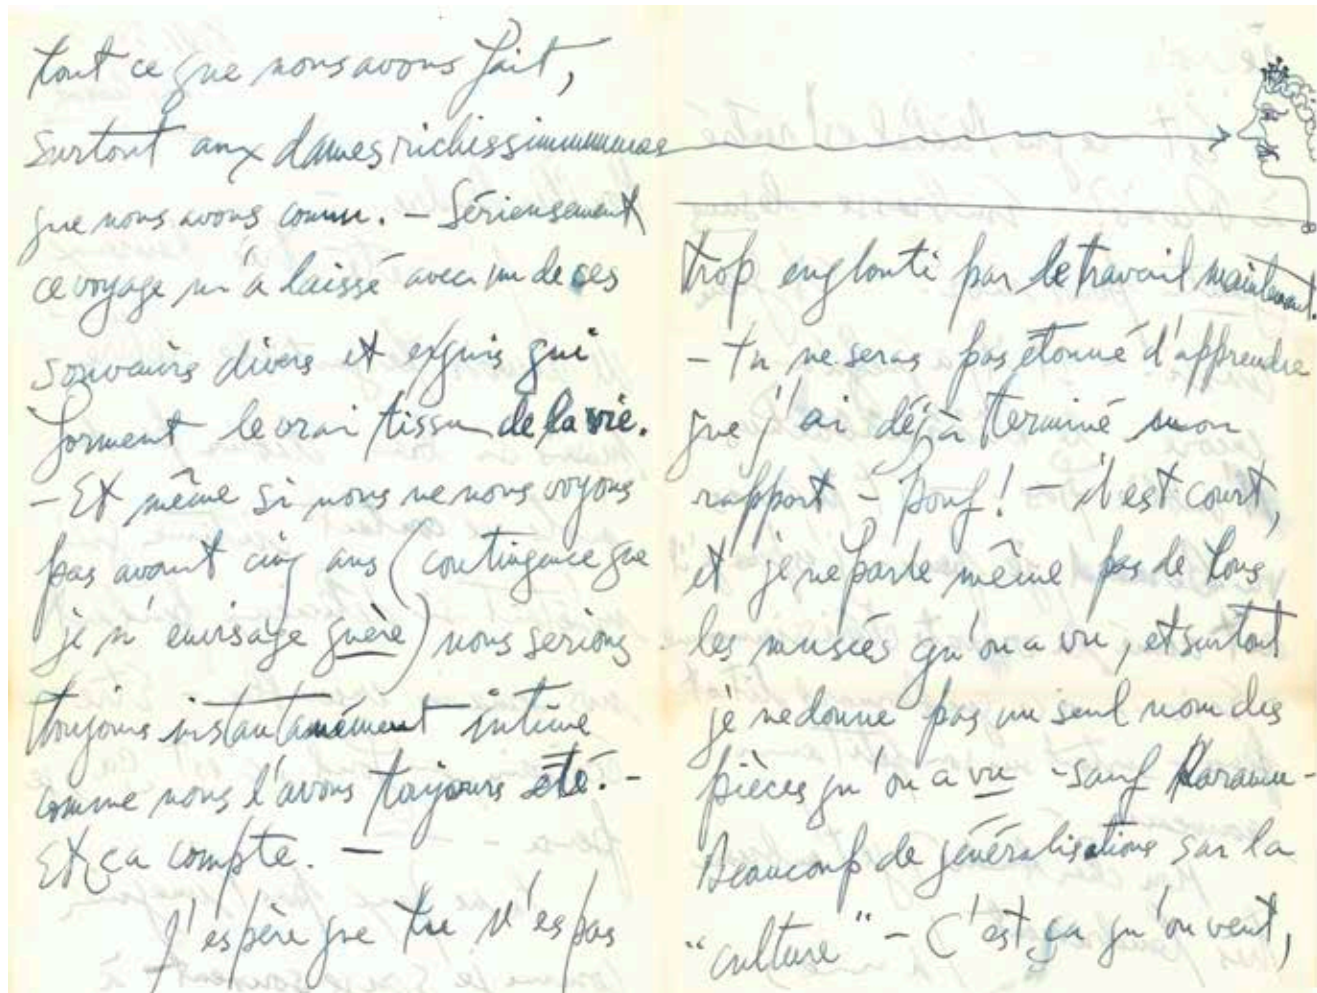 tout ce que nous avons fait,
surtout aux dames richissimmmmmes
que nous avons connu. – Sérieusement
ce voyage m'a laissé avec un de ces
souvenirs divers et exquis qui
forment le vrai tissu de la vie.
– Et même si nous ne nous voyons
pas avant cinq ans (contingence que
je n'envisage guère) nous serions
toujours instantanément intime
comme nous l'avons toujours été. –
Et ça compte. –
J'espère que tu n'es pas
trop englouti par le travail maintenant.
– Tu ne seras pas étonné d'apprendre
que j'ai déjà terminé mon
rapport – pouf! – il est court,
et je ne parle même pas de tous
les musées qu'on a vu, et surtout
je ne donne pas un seul nom des
pièces qu'on a vu – sauf Karamu –
Beaucoup de généralisations sur la
"culture" – C'est ça qu'on veut,